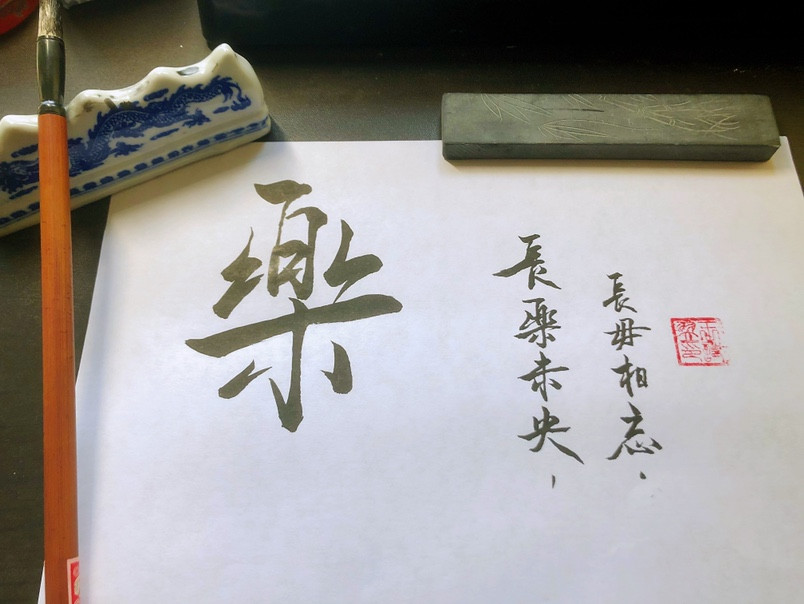 樂
長樂未央、
長毋相忘、